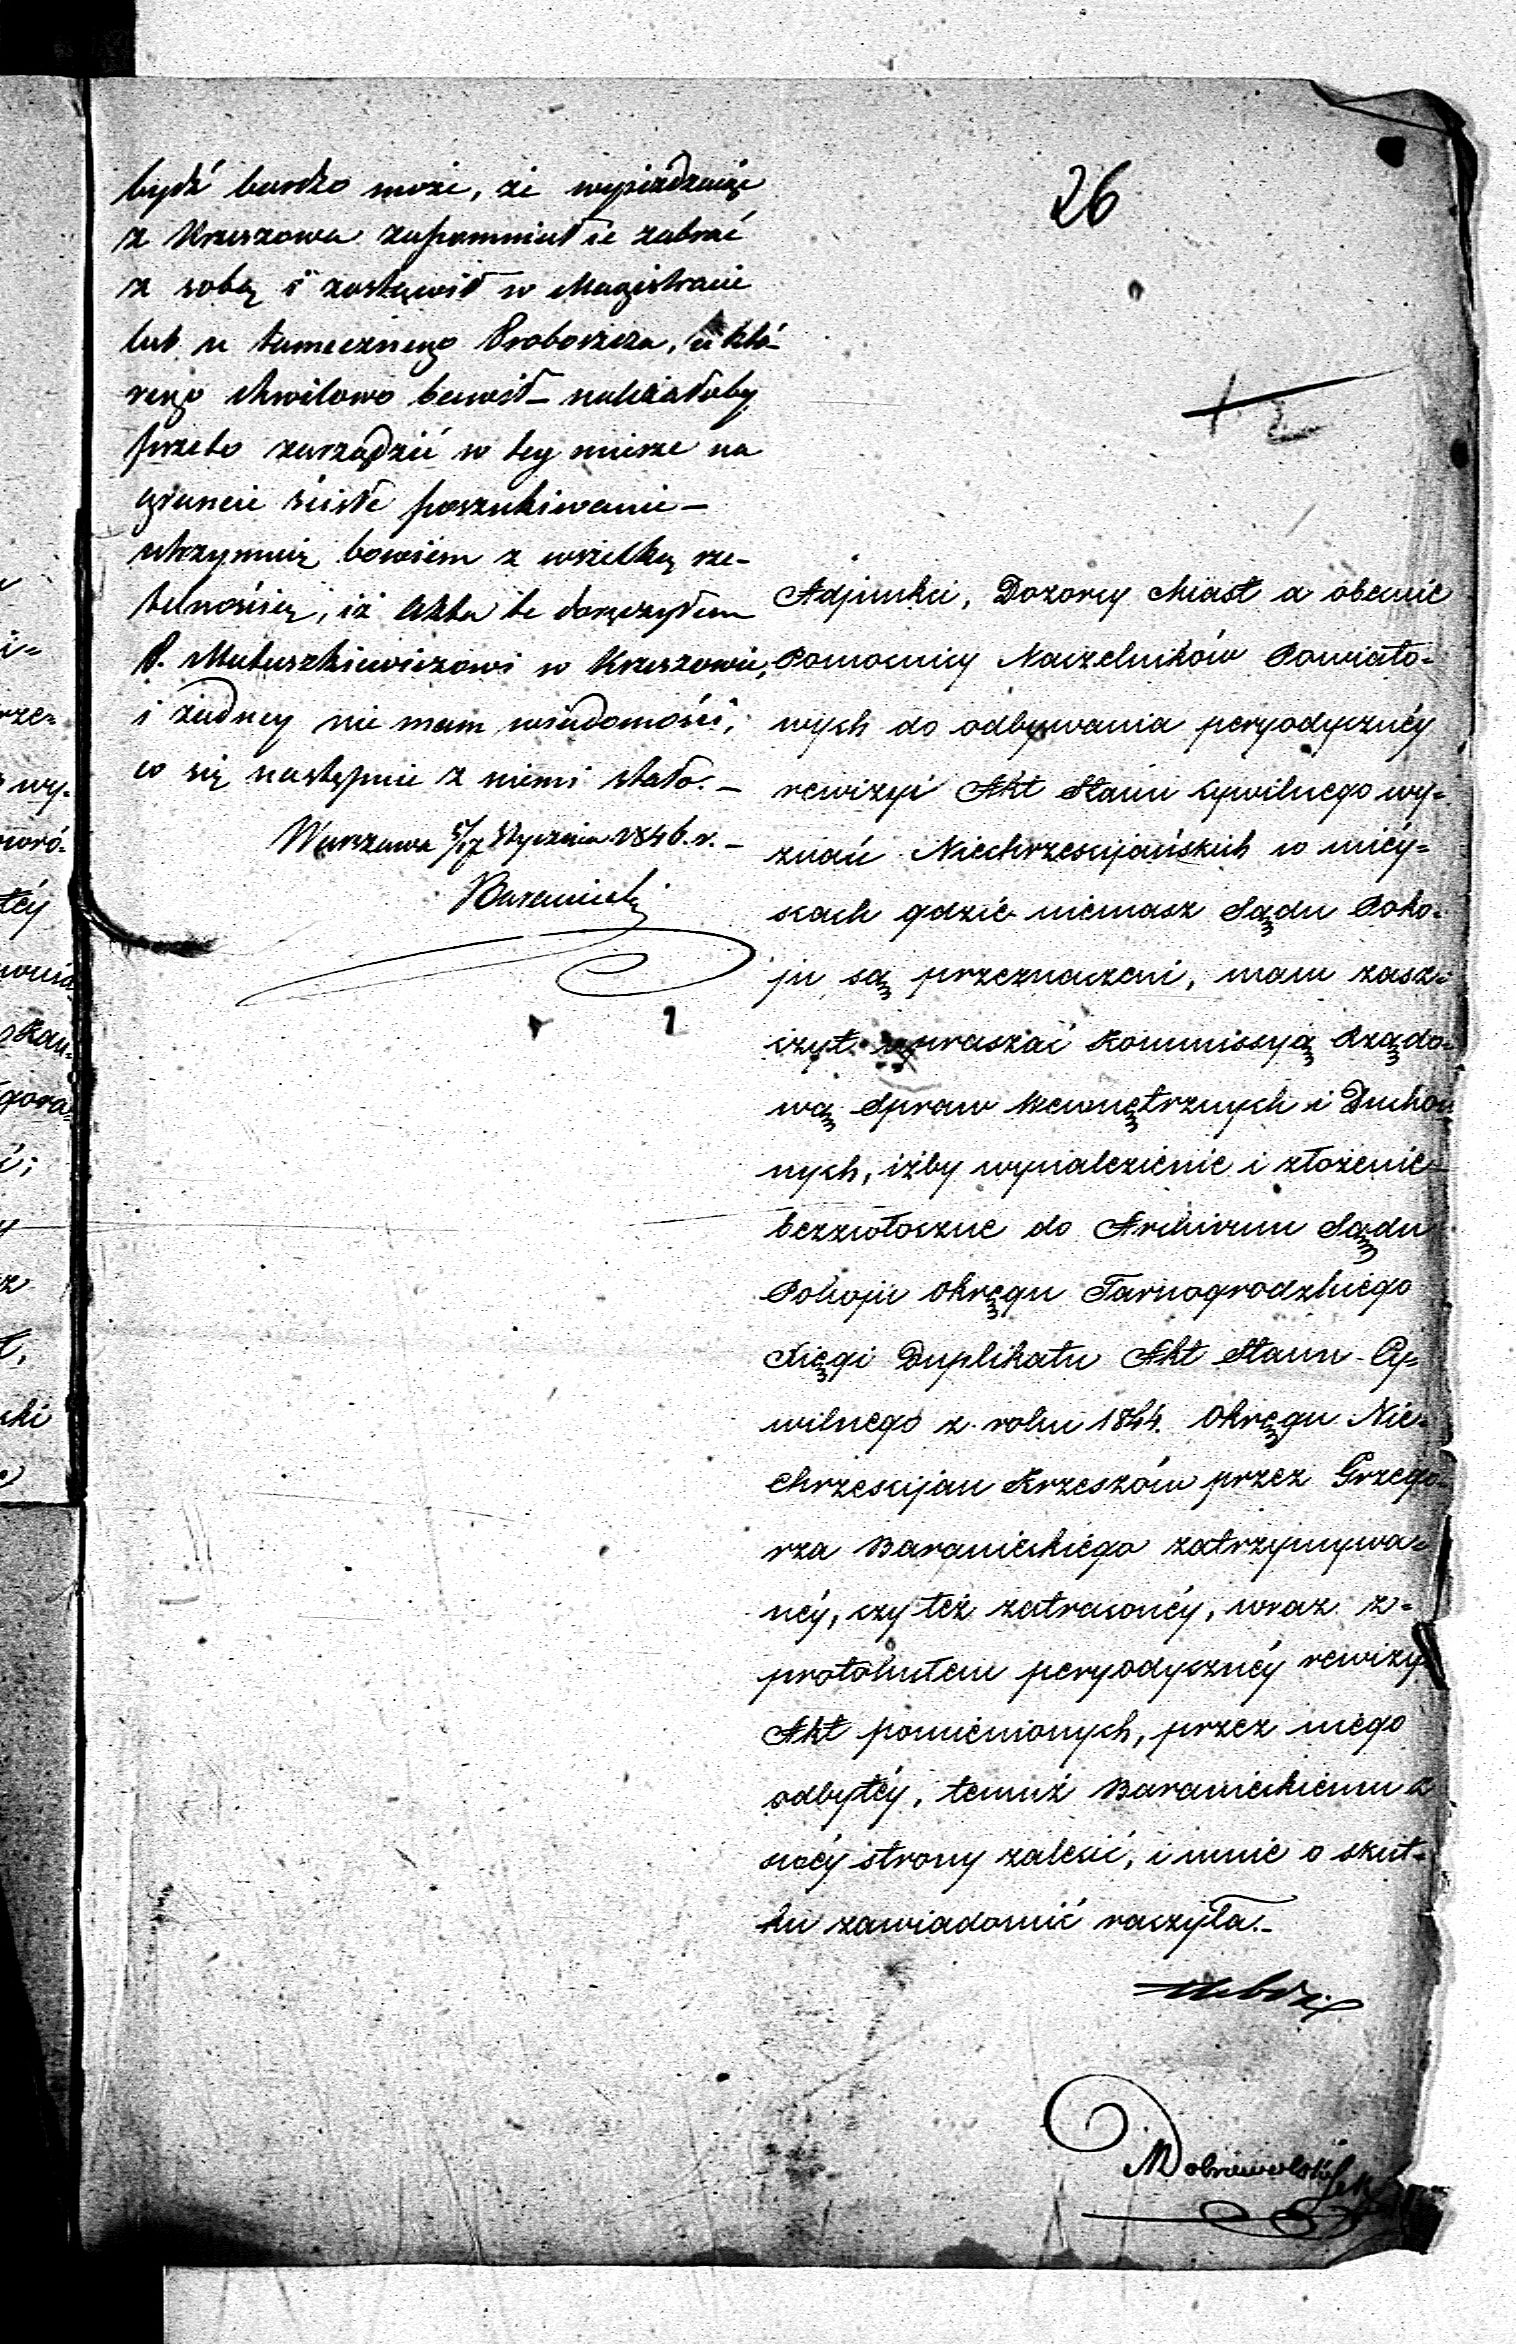 26
być bardzo może, że wyjeżdżając
z Krzeszowa zapomniał ie zabrać
z sobą i zostawił w Magistracie
lub u tamecznego Proboszcza, u któ-
rego chwilowo bawił – należałoby
przeto zarządzić w tey mierze na
gruncie ścisłe poszukiwanie –
utrzymuię bowiem z wszelką rze-
telnością, iż Akta te doręczyłem
P. Matuszkiewiczowi w Krzeszowie,
i żadney nie mam wiadomości,
co się następnie z niemi stało. –
Warszawa 5/17 Stycznia 1846. r. –
Baraniecki
Adjunkci, Dozorcy Miast a obecnie
Pomocnicy Naczelników Powiato-
wych do odbywania peryodycznéy
rewizyi Akt Stanu Cywilnego wy-
znań Niechrześcijańskich w miéy-
scach gdzie niemasz Sądu Poko-
ju są przeznaczeni, mam zasz-
czyt upraszać Kommissyą Rządo-
wą Spraw Wewnętrznych i Duchow
nych, iżby wynalezienie i złożenie
bezzwłoczne do Archivum Sądu
Pokoju Okręgu Tarnogrodzkiego
Xięgi Duplikatu Akt Stanu Cy-
wilnego z roku 1844. Okręgu Nie-
chrześcijan Krzeszów przez Grzego-
rza Baranieckiego zatrzymywa-
néy, czy też zatraconéy, wraz z-
protokułem peryodycznéy rewizyi
Akt pomienionych, przez niego
odbytéy, temuż Baranieckiemu z
swéy strony zalecić, i mnie o skut-
ku zawiadomić raczyła. –
Dobrowolski